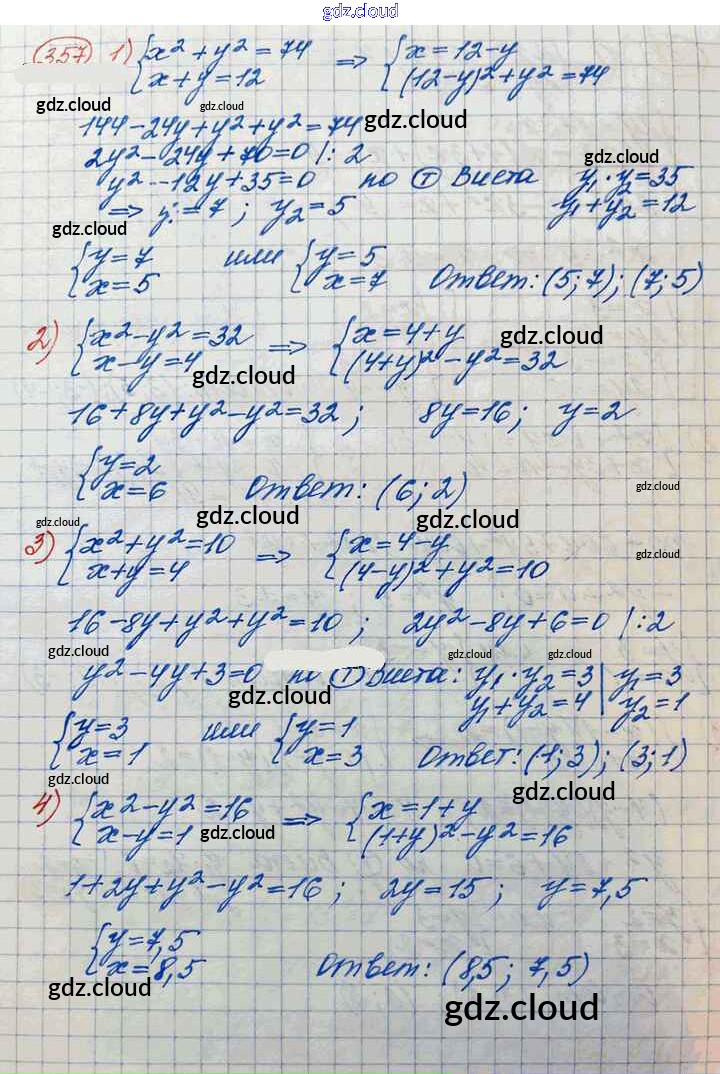 gdz.cloud
357) 1) {x² + y² = 74 => {x = 12 - y
{x + y = 12 {(12-y)² + y² = 74
gdz.cloud gdz.cloud
144 - 24y + y² + y² = 74 gdz.cloud
2y² - 24y + 70 = 0 |: 2 gdz.cloud
y² - 12y + 35 = 0 по Т Виета y₁ · y₂ = 35
=> y₁ = 7 ; y₂ = 5 y₁ + y₂ = 12
gdz.cloud
{y = 7 или {y = 5
{x = 5 {x = 7 Ответ: (5; 7); (7; 5)
2) {x² - y² = 32 => {x = 4 + y gdz.cloud
{x - y = 4 {(4+y)² - y² = 32
gdz.cloud
16 + 8y + y² - y² = 32 ; 8y = 16 ; y = 2
{y = 2
{x = 6 Ответ: (6; 2) gdz.cloud
gdz.cloud gdz.cloud gdz.cloud
3) {x² + y² = 10 => {x = 4 - y
{x + y = 4 {(4-y)² + y² = 10 gdz.cloud
16 - 8y + y² + y² = 10 ; 2y² - 8y + 6 = 0 |: 2
gdz.cloud gdz.cloud gdz.cloud
y² - 4y + 3 = 0 по Т Виета: y₁ · y₂ = 3 | y₁ = 3
gdz.cloud y₁ + y₂ = 4 | y₂ = 1
{y = 3 или {y = 1
{x = 1 {x = 3 Ответ: (1; 3); (3; 1)
gdz.cloud
4) {x² - y² = 16 => {x = 1 + y
{x - y = 1 gdz.cloud {(1+y)² - y² = 16
1 + 2y + y² - y² = 16 ; 2y = 15 ; y = 7,5
{y = 7,5
{x = 8,5 Ответ: (8,5 ; 7,5)
gdz.cloud gdz.cloud